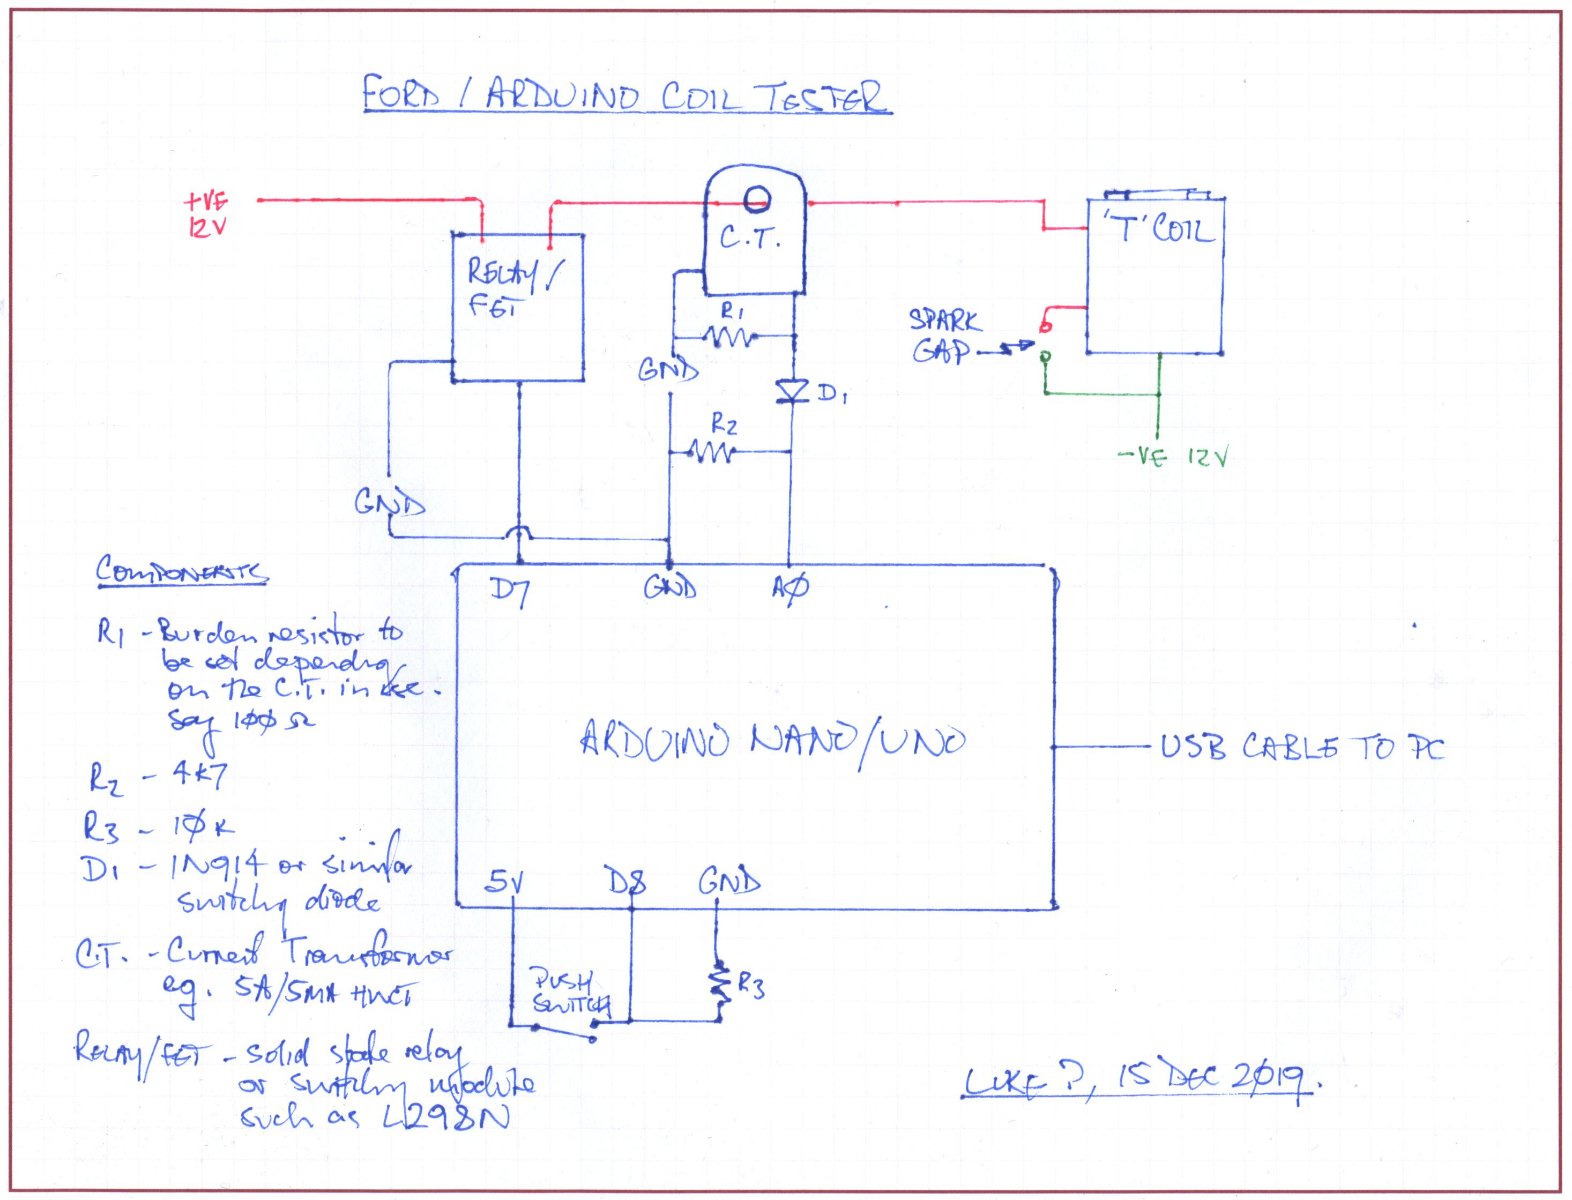 FORD / ARDUINO COIL TESTER
+VE
12V
RELAY/
FET
C.T.
'T' COIL
R1
GND
D1
R2
SPARK
GAP
-VE 12V
GND
COMPONENTS
D7
GND
AØ
R1 - Burden resistor to
be set depending
on the C.T. in use.
Say 1ØØ Ω
R2 - 4K7
R3 - 1ØK
D1 - 1N914 or similar
switching diode
C.T. - Current Transformer
eg. 5A/5MA HWCT
RELAY/FET - solid state relay
or switching module
such as L298N
ARDUINO NANO/UNO
USB CABLE TO PC
5V
D8
GND
PUSH
SWITCH
R3
LUKE ?, 15 DEC 2Ø19.